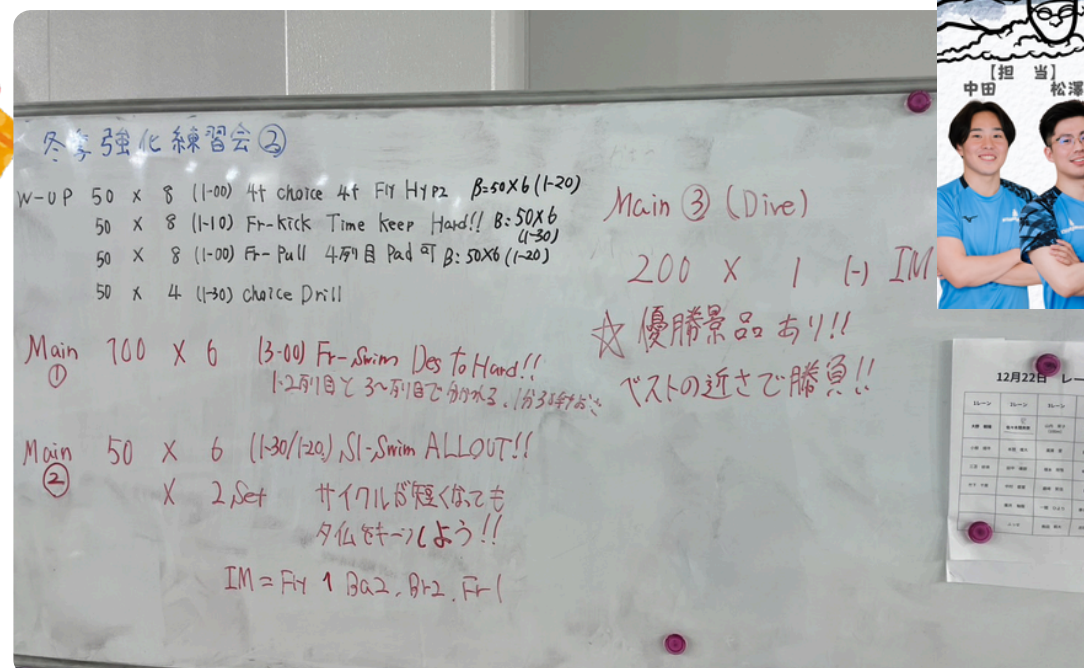 冬季強化練習会②
W-UP 50 × 8 (1-00) 4t choice 4t Fly Hyp2 B=50×6 (1-20)
50 × 8 (1-10) Fr-Kick Time Keep Hard!! B:50×6 (1-30)
50 × 8 (1-00) Fr-Pull 4列目 Pad可 B:50×6 (1-20)
50 × 4 (1-30) choice Drill
Main ① 100 × 6 (3-00) Fr-Swim Des to Hard!!
1.2列目と3〜列目で分かれる.
Main ② 50 × 6 (1-30/1-20) S1-Swim ALLOUT!!
× 2 Set サイクルが短くなっても
タイムをキープしよう!!
IM = Fly 1 Ba2. Br2. Fr1
Main ③ (Dive)
200 × 1 (-) IM
☆ 優勝景品あり!!
ベストの近さで勝負!!
【担 当】
中田 松澤
12月22日 レー